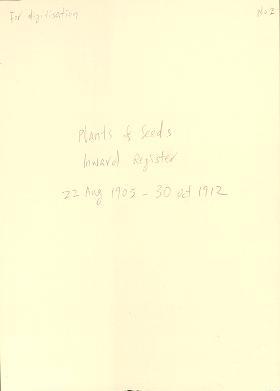 For digitisation
No 2
Plants & Seeds
Inward Register
22 Aug 1905 - 30 Oct 1912